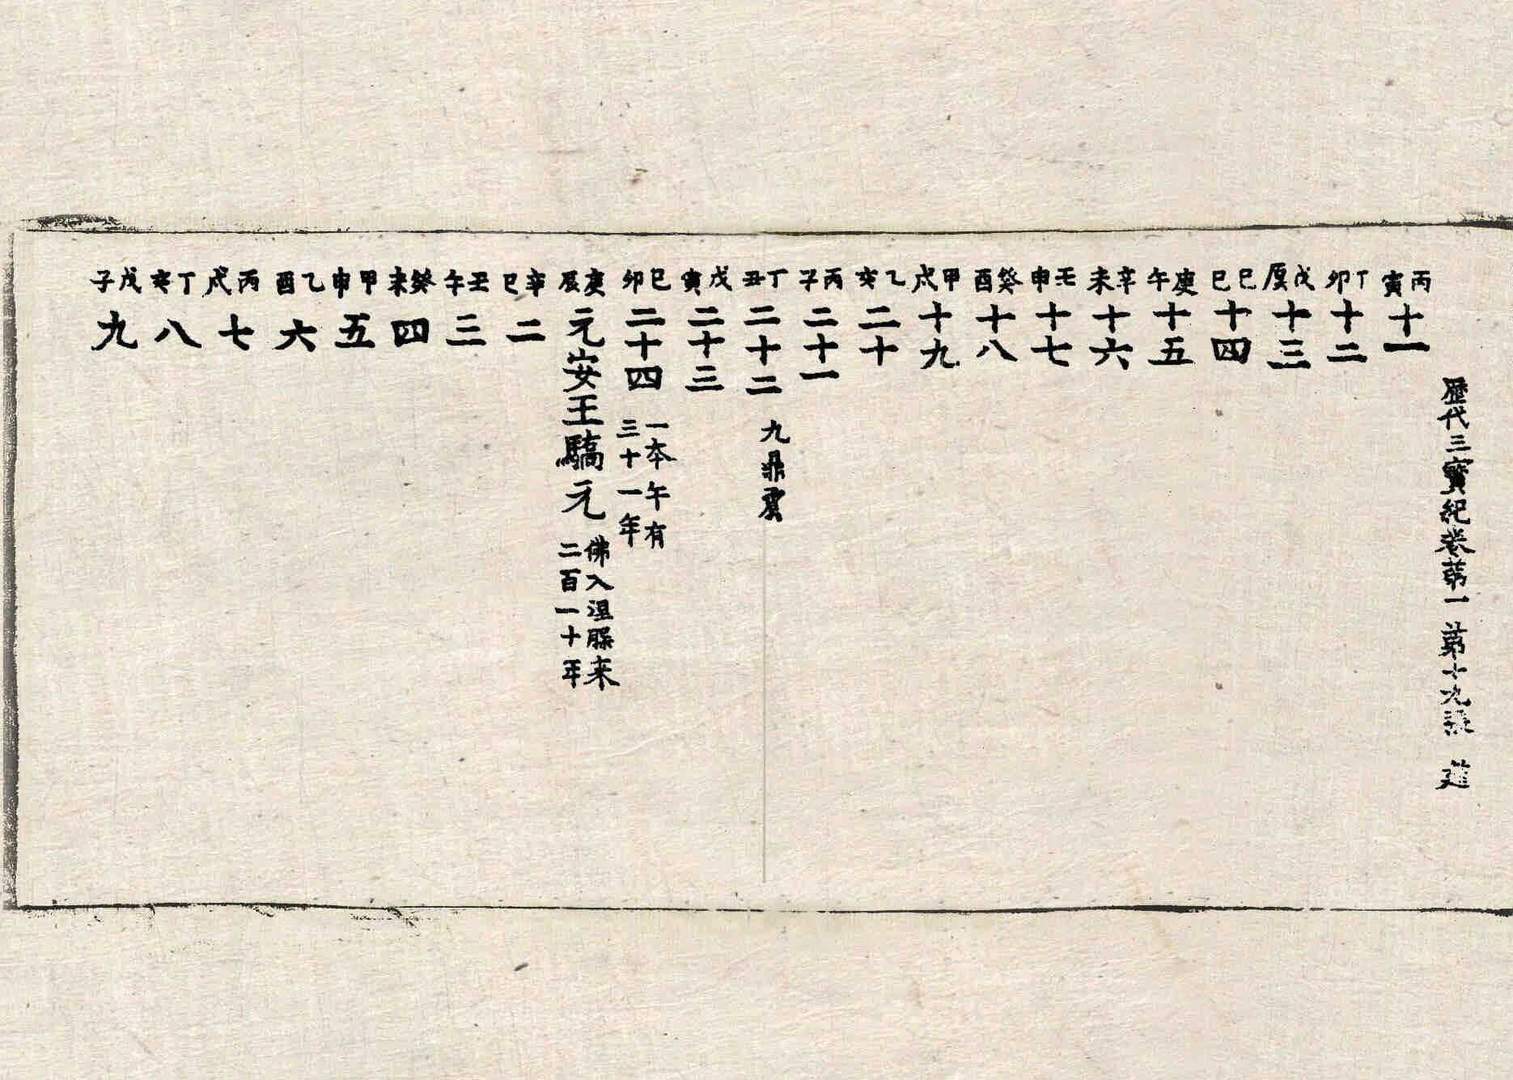 歷代三寶紀卷第一 第十九張
丙寅 十一
丁卯 十二
戊辰 十三
巳巳 十四
庚午 十五
辛未 十六
壬申 十七
癸酉 十八
甲戌 十九
乙亥 二十
丙子 二十一
丁丑 二十二 九鼎震
戊寅 二十三
巳卯 二十四 一本午有三十一年
庚辰 元安王驕元 佛入涅槃来二百一十年
辛巳 二
壬午 三
癸未 四
甲申 五
乙酉 六
丙戌 七
丁亥 八
戊子 九